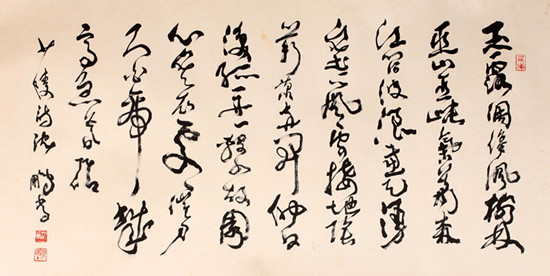 玉露凋傷楓樹林
巫山巫峽氣蕭森
江間波浪兼天湧
塞上風雲接地陰
叢菊兩開他日
淚孤舟一繫故園
心寒衣處處催刀
尺白帝城
高急暮砧
少陵詩 鵬書